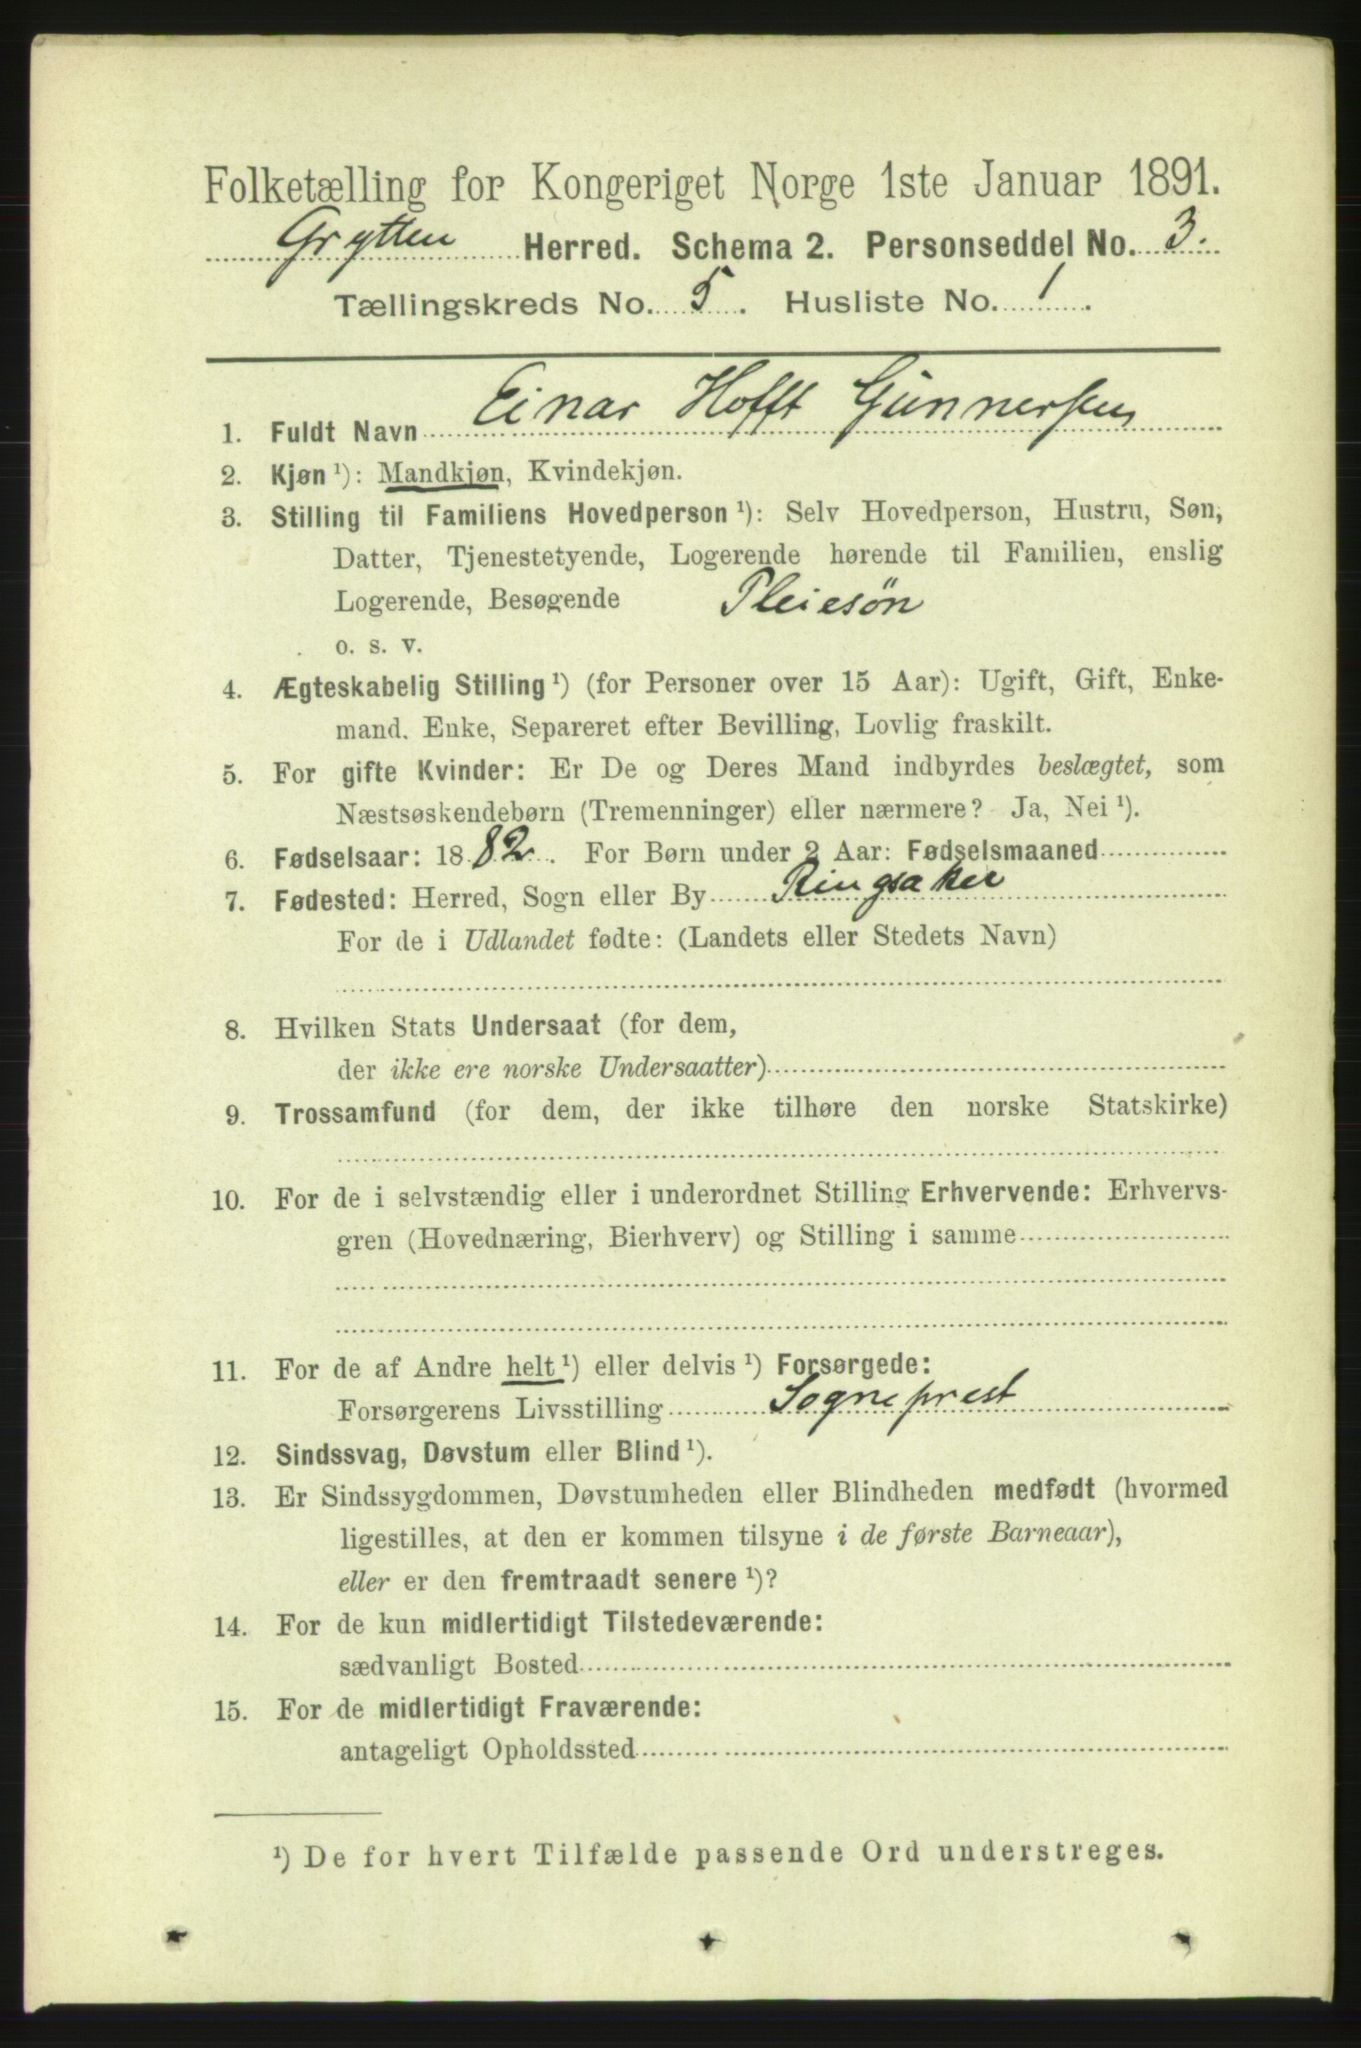 Folketælling for Kongeriget Norge 1ste Januar 1891.
Grytten Herred. Schema 2. Personseddel No. 3.
Tællingskreds No. 5. Husliste No. 1.
1. Fuldt Navn Einar Hofft Gunnersen
2. Kjøn ¹): Mandkjøn, Kvindekjøn.
3. Stilling til Familiens Hovedperson ¹): Selv Hovedperson, Hustru, Søn,
Datter, Tjenestetyende, Logerende hørende til Familien, enslig
Logerende, Besøgende Pleiesøn
o. s. v.
4. Ægteskabelig Stilling ¹) (for Personer over 15 Aar): Ugift, Gift, Enke-
mand. Enke, Separeret efter Bevilling, Lovlig fraskilt.
5. For gifte Kvinder: Er De og Deres Mand indbyrdes beslægtet, som
Næstsøskendebørn (Tremenninger) eller nærmere? Ja, Nei ¹).
6. Fødselsaar: 1882. For Børn under 2 Aar: Fødselsmaaned
7. Fødested: Herred, Sogn eller By Ringsaker
For de i Udlandet fødte: (Landets eller Stedets Navn)
8. Hvilken Stats Undersaat (for dem,
der ikke ere norske Undersaatter)
9. Trossamfund (for dem, der ikke tilhøre den norske Statskirke)
10. For de i selvstændig eller i underordnet Stilling Erhvervende: Erhvervs-
gren (Hovednæring, Bierhverv) og Stilling i samme
11. For de af Andre helt ¹) eller delvis ¹) Forsørgede:
Forsørgerens Livsstilling Sogneprest
12. Sindssvag, Døvstum eller Blind ¹).
13. Er Sindssygdommen, Døvstumheden eller Blindheden medfødt (hvormed
ligestilles, at den er kommen tilsyne i de første Barneaar),
eller er den fremtraadt senere ¹)?
14. For de kun midlertidigt Tilstedeværende:
sædvanligt Bosted
15. For de midlertidigt Fraværende:
antageligt Opholdssted
¹) De for hvert Tilfælde passende Ord understreges.